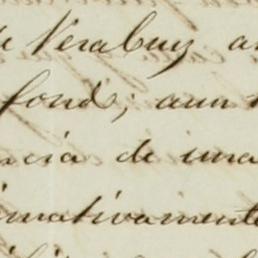 de Veracruz a
fond; aun
ncia de una
imativamente